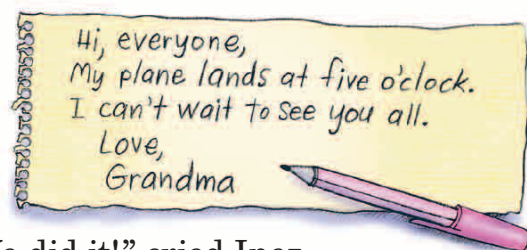 Hi, everyone,
My plane lands at five o'clock.
I can't wait to see you all.
Love,
Grandma
did it!" cried Inez